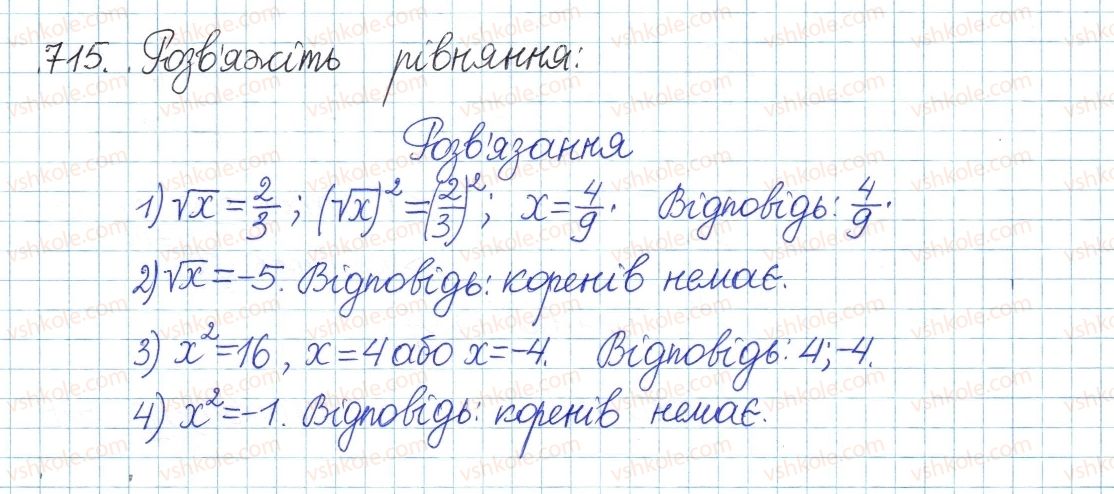 715. Розв'яжіть рівняння:
Розв'язання
1) √x = 2/3; (√x)² = (2/3)²; x = 4/9. Відповідь: 4/9.
2) √x = -5. Відповідь: коренів немає.
3) x² = 16, x = 4 або x = -4. Відповідь: 4; -4.
4) x² = -1. Відповідь: коренів немає.